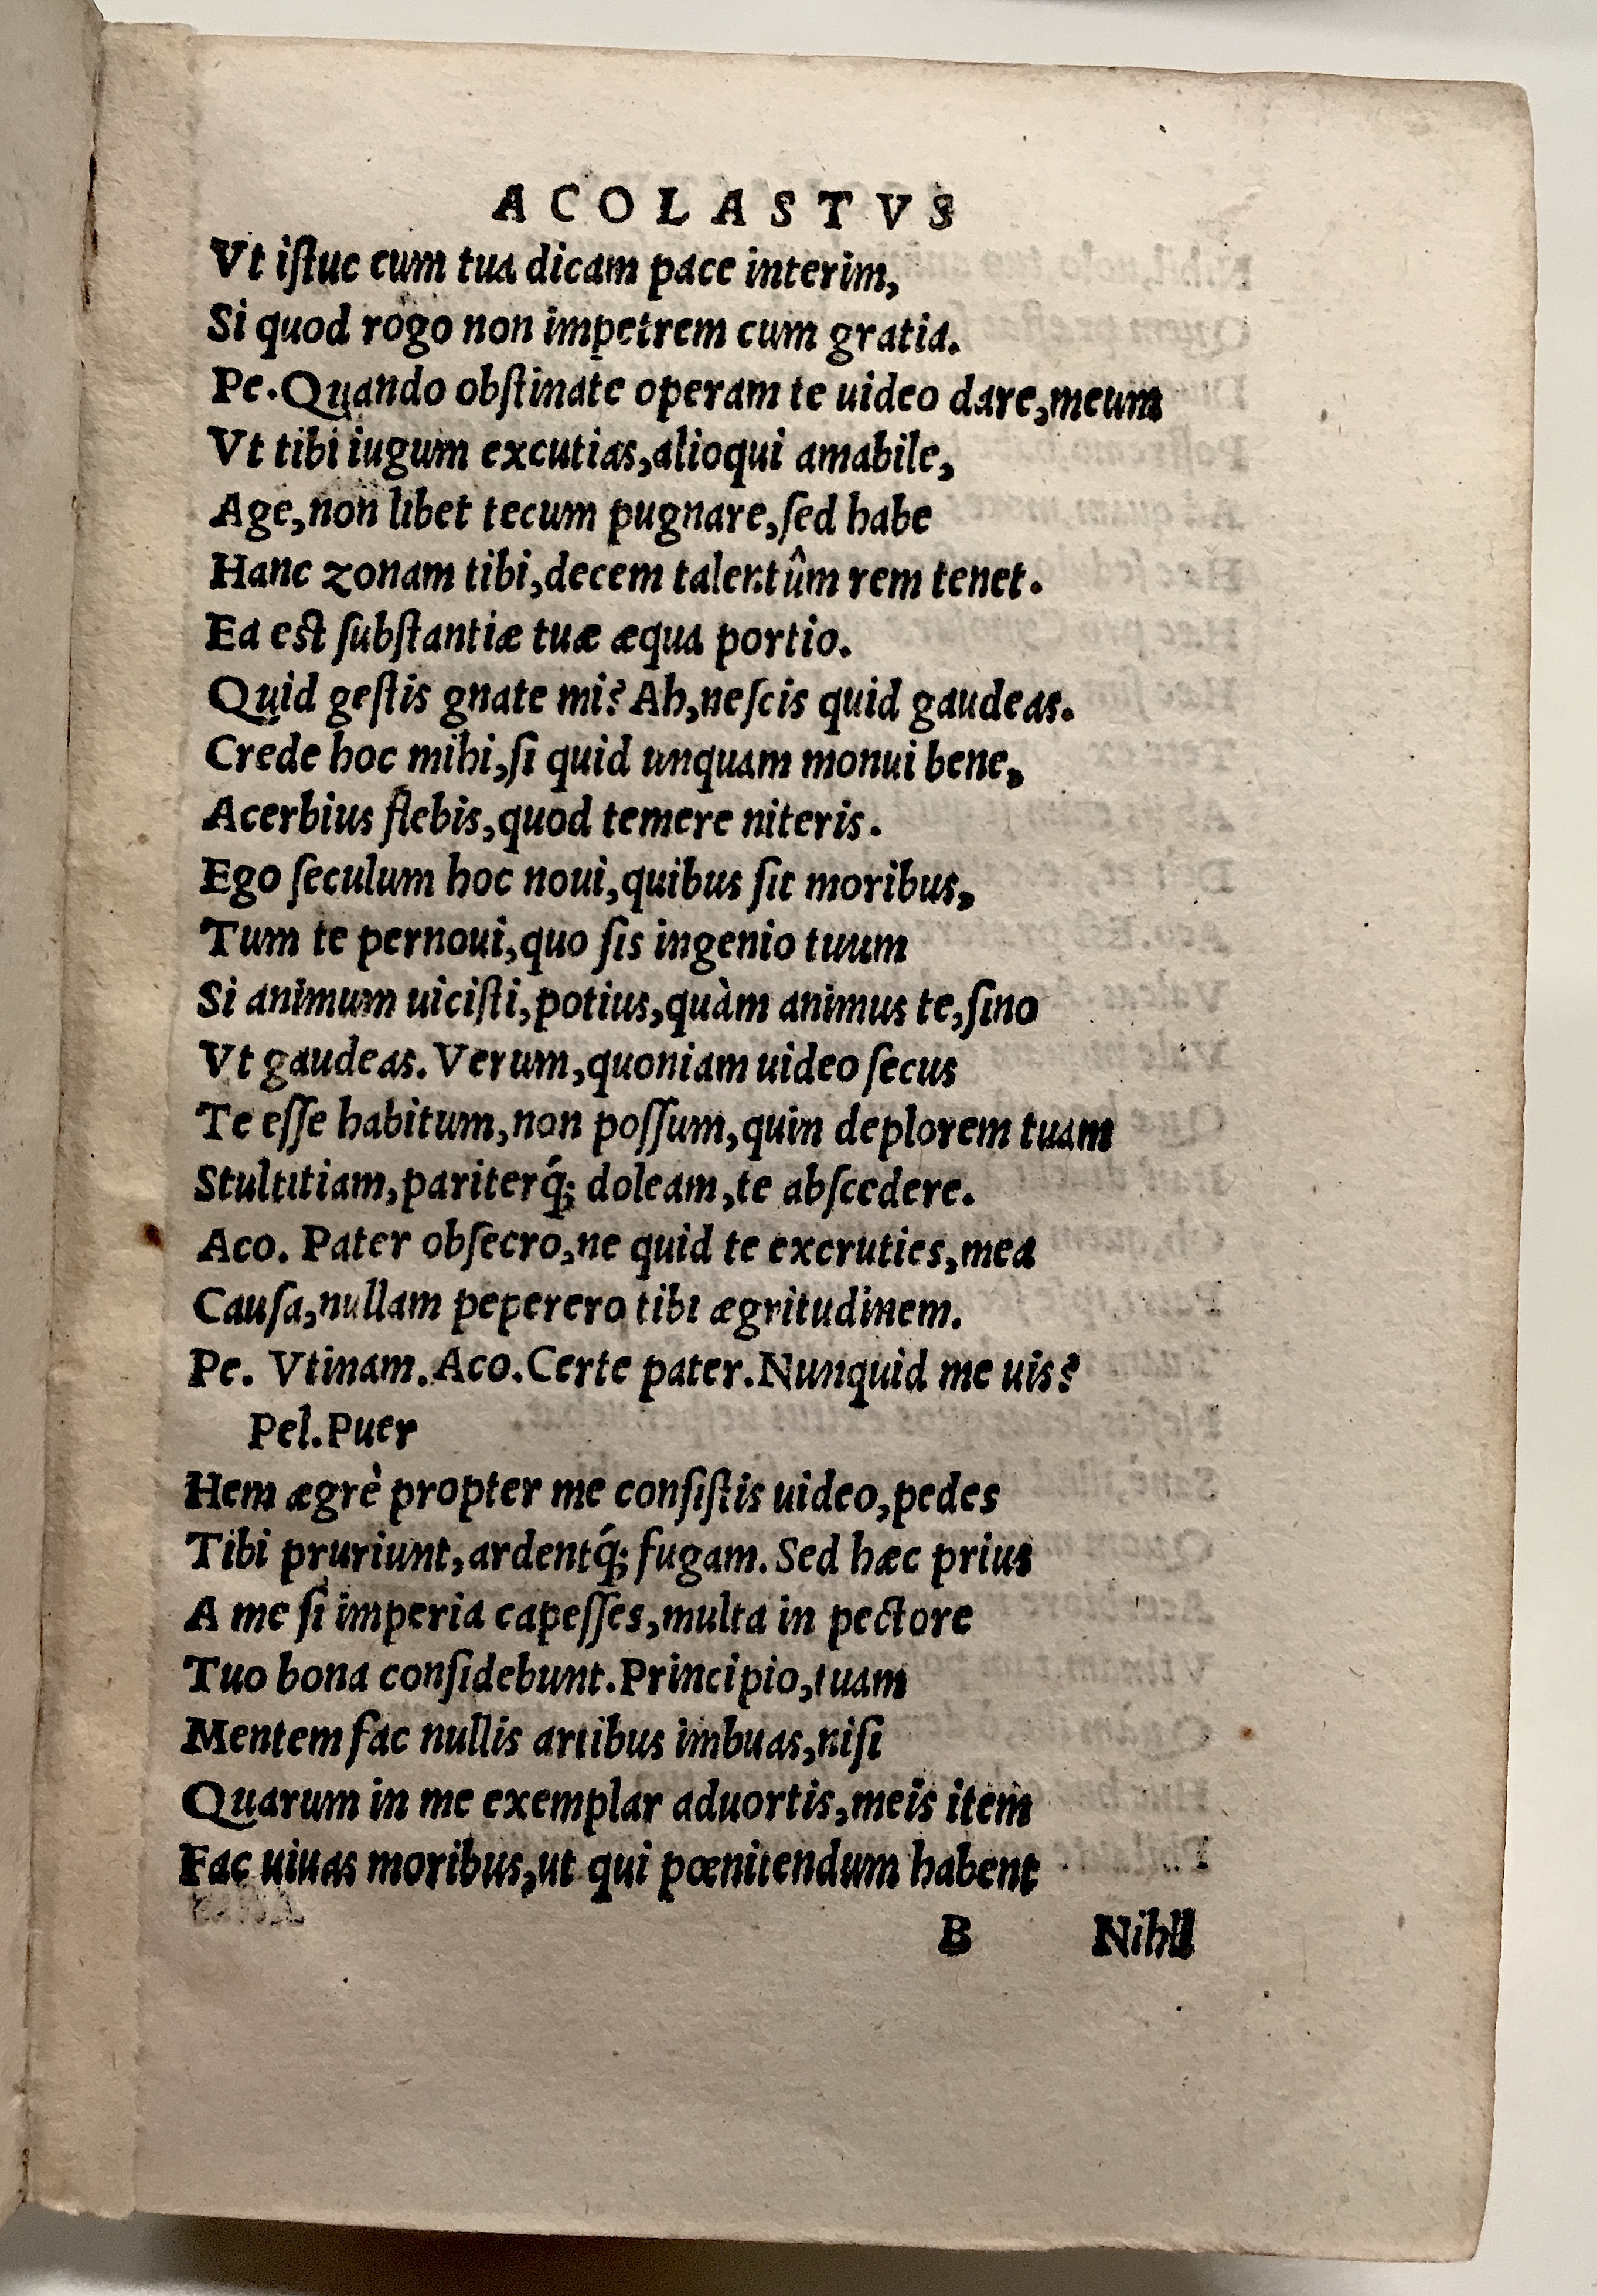 ACOLASTVS
Vt iſtuc cum tua dicam pace interim,
Si quod rogo non impetrem cum gratia.
Pe.Quando obſtinate operam te uideo dare,meum
Vt tibi iugum excutias,alioqui amabile,
Age,non libet tecum pugnare,ſed habe
Hanc zonam tibi,decem talentûm rem tenet.
Ea est ſubſtantiæ tuæ æqua portio.
Quid geſtis gnate mi? Ah,neſcis quid gaudeas.
Crede hoc mihi,ſi quid unquam monui bene,
Acerbius flebis,quod temere niteris.
Ego ſeculum hoc noui,quibus ſit moribus,
Tum te pernoui,quo ſis ingenio tuum
Si animum uiciſti,potius,quàm animus te,ſino
Vt gaudeas. Verum,quoniam uideo ſecus
Te eſſe habitum,non poſſum,quin deplorem tuam
Stultitiam,pariterq́; doleam,te abſcedere.
Aco. Pater obſecro,ne quid te excruties,mea
Cauſa,nullam peperero tibi ægritudinem.
Pe. Vtinam.Aco.Certe pater.Nunquid me uis?
Pel.Puer
Hem ægrè propter me conſiſtis uideo,pedes
Tibi pruriunt,ardentq́; fugam. Sed hæc prius
A me ſi imperia capeſſes,multa in pectore
Tuo bona conſidebunt.Principio,tuam
Mentem fac nullis artibus imbuas,niſi
Quarum in me exemplar aduortis,meis item
Fac uiuas moribus,ut qui pœnitendum habent
B Nihil